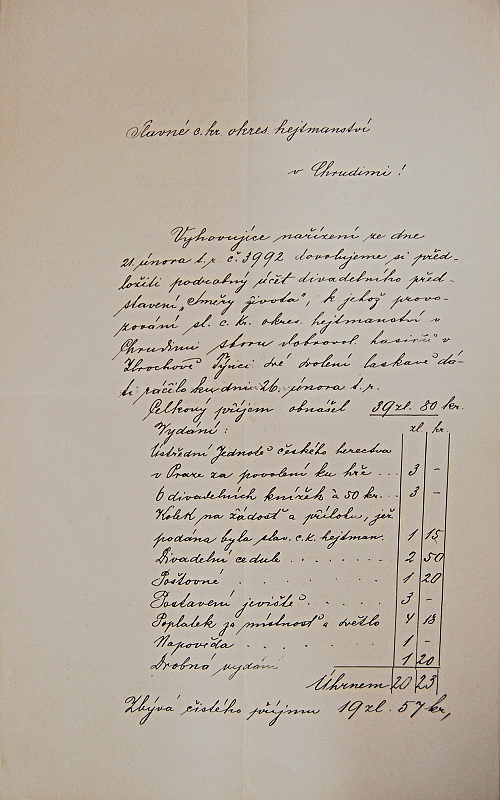 Slavné c. kr. okres. hejtmanství
v Chrudimi!
Vyhovujíce nařízení ze dne
21. února t. r. č. 3992 dovolujeme si před-
ložiti podrobný účet divadelního před-
stavení „Směry života", k jehož provo-
zování sl. c. kr. okres. hejtmanství v
Chrudimi sboru dobrovol. hasičů v
Hrochově Týnci své svolení laskavě dá-
ti ráčilo ku dni 26. února t. r.
Celkový příjem obnášel 39 zl. 80 kr.
Vydání: zl. kr.
Ústřední Jednotě českého herectva
v Praze za povolení ku hře ... 3 –
6 divadelních knížek à 50 kr... 3 –
Kolek na žádost a přílohu, jež
podána byla slav. c. k. hejtman. 1 15
Divadelní cedule . . . . . . . 2 50
Poštovné . . . . . . . 1 20
Postavení jeviště . . . . . 3 –
Poplatek za místnost a světlo 4 18
Napověda . . . . . . 1 –
Drobná vydání 1 20
Úhrnem 20 23
Zbývá čistého příjmu 19 zl. 57 kr.